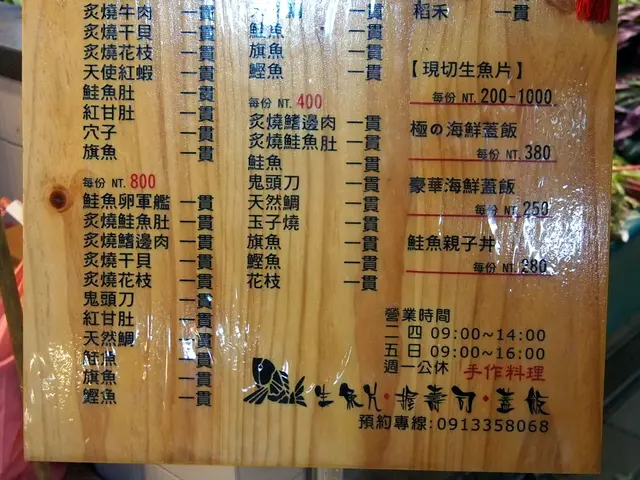 炙燒牛肉 一貫
炙燒干貝 一貫
炙燒花枝 一貫
天使紅蝦 一貫
鮭魚肚 一貫
紅甘肚 一貫
穴子 一貫
旗魚 一貫
每份 NT. 800
鮭魚卵軍艦 一貫
炙燒鮭魚肚 一貫
炙燒鰭邊肉 一貫
炙燒干貝 一貫
炙燒花枝 一貫
鬼頭刀 一貫
紅甘肚 一貫
天然鯛 一貫
鮭魚 一貫
旗魚 一貫
鰹魚 一貫
一貫
鮭魚 一貫
旗魚 一貫
鰹魚 一貫
每份 NT. 400
炙燒鰭邊肉 一貫
炙燒鮭魚肚 一貫
鮭魚 一貫
鬼頭刀 一貫
天然鯛 一貫
玉子燒 一貫
旗魚 一貫
鰹魚 一貫
花枝 一貫
稻禾 一貫
【現切生魚片】
每份 NT.200-1000
極の海鮮蓋飯
每份 NT.380
豪華海鮮蓋飯
每份 NT.250
鮭魚親子丼
每份 NT.280
營業時間
二 四 09:00~14:00
五 日 09:00~16:00
週一公休 手作料理
生魚片·握壽司·蓋飯
預約專線:0913358068